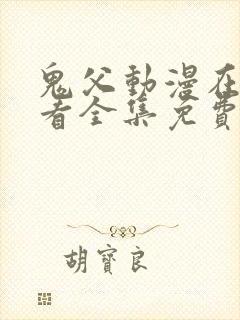 鬼父動漫在
看全集免費
胡寶良